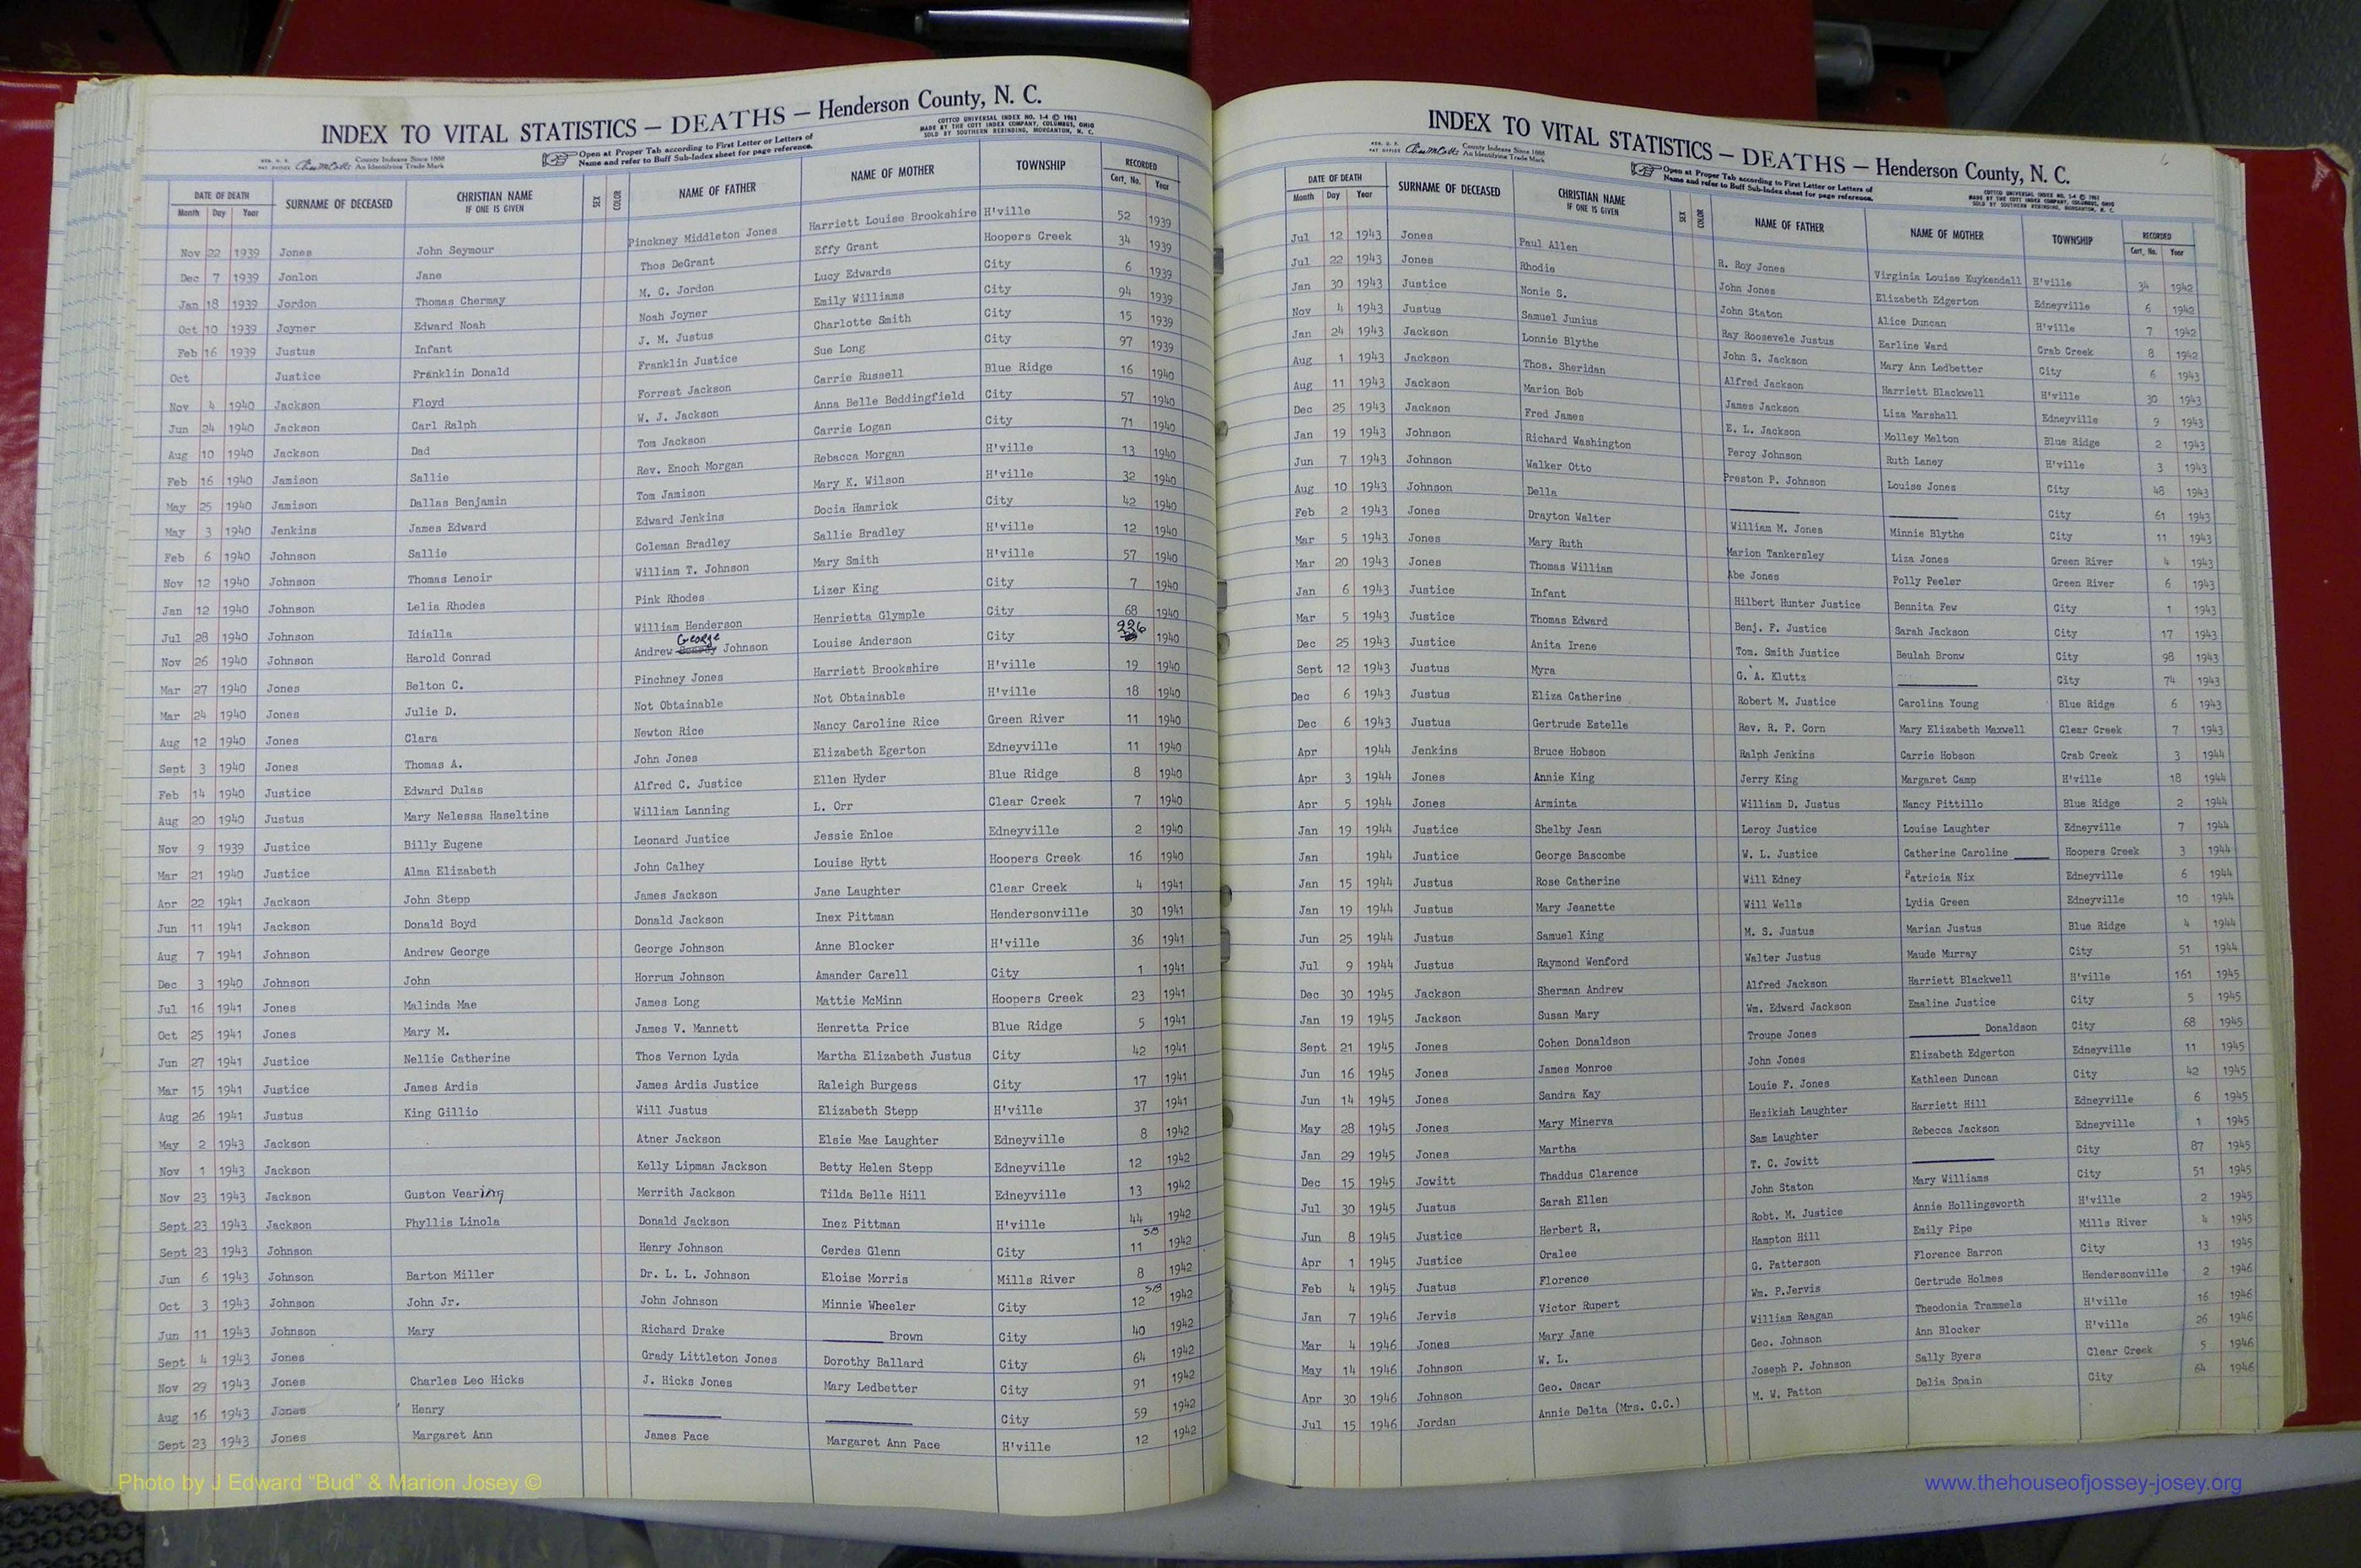 INDEX TO VITAL STATISTICS — DEATHS — Henderson County, N. C.
COTTCO UNIVERSAL INDEX NO. 1-4 © 1961
MADE BY THE COTT INDEX COMPANY, COLUMBUS, OHIO
SOLD BY SOUTHERN REBINDING, MORGANTON, N. C.
County Indexes Since 1888
An Identifying Trade Mark
Open at Proper Tab according to First Letter or Letters of
Name and refer to Buff Sub-Index sheet for page reference.
DATE OF DEATH SURNAME OF DECEASED CHRISTIAN NAME IF ONE IS GIVEN SEX COLOR NAME OF FATHER NAME OF MOTHER TOWNSHIP RECORDED
Month Day Year Cert. No. Year
Nov 22 1939 Jones John Seymour Pinckney Middleton Jones Harriett Louise Brookshire H'ville 52 1939
Dec 7 1939 Jonlon Jane Thos DeGrant Effy Grant Hoopers Creek 34 1939
Jan 18 1939 Jordon Thomas Chermay M. C. Jordon Lucy Edwards City 6 1939
Oct 10 1939 Joyner Edward Noah Noah Joyner Emily Williams City 94 1939
Feb 16 1939 Justus Infant J. M. Justus Charlotte Smith City 15 1939
Oct Justice Franklin Donald Franklin Justice Sue Long City 97 1939
Nov 4 1940 Jackson Floyd Forrest Jackson Carrie Russell Blue Ridge 16 1940
Jun 24 1940 Jackson Carl Ralph W. J. Jackson Anna Belle Beddingfield City 57 1940
Aug 10 1940 Jackson Dad Tom Jackson Carrie Logan City 71 1940
Feb 16 1940 Jamison Sallie Rev. Enoch Morgan Rebacca Morgan H'ville 13 1940
May 25 1940 Jamison Dallas Benjamin Tom Jamison Mary K. Wilson H'ville 32 1940
May 3 1940 Jenkins James Edward Edward Jenkins Docia Hamrick City 42 1940
Feb 6 1940 Johnson Sallie Coleman Bradley Sallie Bradley H'ville 12 1940
Nov 12 1940 Johnson Thomas Lenoir William T. Johnson Mary Smith H'ville 57 1940
Jan 12 1940 Johnson Lelia Rhodes Pink Rhodes Lizer King City 7 1940
Jul 28 1940 Johnson Idialla William Henderson Henrietta Glymple City 68 1940
Nov 26 1940 Johnson Harold Conrad Andrew George Johnson Louise Anderson City 1940
Mar 27 1940 Jones Belton C. Pinchney Jones Harriett Brookshire H'ville 19 1940
Mar 24 1940 Jones Julie D. Not Obtainable Not Obtainable H'ville 18 1940
Aug 12 1940 Jones Clara Newton Rice Nancy Caroline Rice Green River 11 1940
Sept 3 1940 Jones Thomas A. John Jones Elizabeth Egerton Edneyville 11 1940
Feb 14 1940 Justice Edward Dulas Alfred C. Justice Ellen Hyder Blue Ridge 8 1940
Aug 20 1940 Justus Mary Nelessa Haseltine William Lanning L. Orr Clear Creek 7 1940
Nov 9 1939 Justice Billy Eugene Leonard Justice Jessie Enloe Edneyville 2 1940
Mar 21 1940 Justice Alma Elizabeth John Calhey Louise Hytt Hoopers Creek 16 1940
Apr 22 1941 Jackson John Stepp James Jackson Jane Laughter Clear Creek 4 1941
Jun 11 1941 Jackson Donald Boyd Donald Jackson Inex Pittman Hendersonville 30 1941
Aug 7 1941 Johnson Andrew George George Johnson Anne Blocker H'ville 36 1941
Dec 3 1940 Johnson John Horrum Johnson Amander Carell City 1 1941
Jul 16 1941 Jones Malinda Mae James Long Mattie McMinn Hoopers Creek 23 1941
Oct 25 1941 Jones Mary M. James V. Mannett Henretta Price Blue Ridge 5 1941
Jun 27 1941 Justice Nellie Catherine Thos Vernon Lyda Martha Elizabeth Justus City 42 1941
Mar 15 1941 Justice James Ardis James Ardis Justice Raleigh Burgess City 17 1941
Aug 26 1941 Justus King Gillio Will Justus Elizabeth Stepp H'ville 37 1941
May 2 1943 Jackson Atner Jackson Elsie Mae Laughter Edneyville 8 1942
Nov 1 1943 Jackson Kelly Lipman Jackson Betty Helen Stepp Edneyville 12 1942
Nov 23 1943 Jackson Guston Vearing Merrith Jackson Tilda Belle Hill Edneyville 13 1942
Sept 23 1943 Jackson Phyllis Linola Donald Jackson Inez Pittman H'ville 44 1942
Sept 23 1943 Johnson Henry Johnson Cerdes Glenn City 11 SB 1942
Jun 6 1943 Johnson Barton Miller Dr. L. L. Johnson Eloise Morris Mills River 8 1942
Oct 3 1943 Johnson John Jr. John Johnson Minnie Wheeler City 12 SB 1942
Jun 11 1943 Johnson Mary Richard Drake ______ Brown City 40 1942
Sept 4 1943 Jones Grady Littleton Jones Dorothy Ballard City 64 1942
Nov 29 1943 Jones Charles Leo Hicks J. Hicks Jones Mary Ledbetter City 91 1942
Aug 16 1943 Jones Henry ______ ______ City 59 1942
Sept 23 1943 Jones Margaret Ann James Pace Margaret Ann Pace H'ville 12 1942
Photo by J Edward “Bud” & Marion Josey ©
INDEX TO VITAL STATISTICS — DEATHS — Henderson County, N. C.
County Indexes Since 1888
An Identifying Trade Mark
Open at Proper Tab according to First Letter or Letters of
Name and refer to Buff Sub-Index sheet for page reference.
COTTCO UNIVERSAL INDEX NO. 1-4 © 1961
MADE BY THE COTT INDEX COMPANY, COLUMBUS, OHIO
SOLD BY SOUTHERN REBINDING, MORGANTON, N. C.
DATE OF DEATH SURNAME OF DECEASED CHRISTIAN NAME IF ONE IS GIVEN SEX COLOR NAME OF FATHER NAME OF MOTHER TOWNSHIP RECORDED
Month Day Year Cert. No. Year
Jul 12 1943 Jones Paul Allen R. Roy Jones Virginia Louise Kuykendall H'ville 34 1942
Jul 22 1943 Jones Rhodie John Jones Elizabeth Edgerton Edneyville 6 1942
Jan 30 1943 Justice Nonie S. John Staton Alice Duncan H'ville 7 1942
Nov 4 1943 Justus Samuel Junius Ray Roosevele Justus Earline Ward Crab Creek 8 1942
Jan 24 1943 Jackson Lonnie Blythe John S. Jackson Mary Ann Ledbetter City 6 1943
Aug 1 1943 Jackson Thos. Sheridan Alfred Jackson Harriett Blackwell H'ville 30 1943
Aug 11 1943 Jackson Marion Bob James Jackson Liza Marshall Edneyville 9 1943
Dec 25 1943 Jackson Fred James E. L. Jackson Molley Melton Blue Ridge 2 1943
Jan 19 1943 Johnson Richard Washington Percy Johnson Ruth Laney H'ville 3 1943
Jun 7 1943 Johnson Walker Otto Preston P. Johnson Louise Jones City 48 1943
Aug 10 1943 Johnson Della ______ ______ City 61 1943
Feb 2 1943 Jones Drayton Walter William M. Jones Minnie Blythe City 11 1943
Mar 5 1943 Jones Mary Ruth Marion Tankersley Liza Jones Green River 4 1943
Mar 20 1943 Jones Thomas William Abe Jones Polly Peeler Green River 6 1943
Jan 6 1943 Justice Infant Hilbert Hunter Justice Bennita Few City 1 1943
Mar 5 1943 Justice Thomas Edward Benj. F. Justice Sarah Jackson City 17 1943
Dec 25 1943 Justice Anita Irene Tom. Smith Justice Beulah Bronw City 98 1943
Sept 12 1943 Justus Myra G. A. Kluttz ______ City 74 1943
Dec 6 1943 Justus Eliza Catherine Robert M. Justice Carolina Young Blue Ridge 6 1943
Dec 6 1943 Justus Gertrude Estelle Rev. R. P. Corn Mary Elizabeth Maxwell Clear Creek 7 1943
Apr 1944 Jenkins Bruce Hobson Ralph Jenkins Carrie Hobson Crab Creek 3 1944
Apr 3 1944 Jones Annie King Jerry King Margaret Camp H'ville 18 1944
Apr 5 1944 Jones Arminta William D. Justus Nancy Pittillo Blue Ridge 2 1944
Jan 19 1944 Justice Shelby Jean Leroy Justice Louise Laughter Edneyville 7 1944
Jan 1944 Justice George Bascombe W. L. Justice Catherine Caroline ____ Hoopers Creek 3 1944
Jan 15 1944 Justus Rose Catherine Will Edney Patricia Nix Edneyville 6 1944
Jan 19 1944 Justus Mary Jeanette Will Wells Lydia Green Edneyville 10 1944
Jun 25 1944 Justus Samuel King M. S. Justus Marian Justus Blue Ridge 4 1944
Jul 9 1944 Justus Raymond Wenford Walter Justus Maude Murray City 51 1944
Dec 30 1945 Jackson Sherman Andrew Alfred Jackson Harriett Blackwell H'ville 161 1945
Jan 19 1945 Jackson Susan Mary Wm. Edward Jackson Emaline Justice City 5 1945
Sept 21 1945 Jones Cohen Donaldson Troupe Jones ______ Donaldson City 68 1945
Jun 16 1945 Jones James Monroe John Jones Elizabeth Edgerton Edneyville 11 1945
Jun 14 1945 Jones Sandra Kay Louie F. Jones Kathleen Duncan City 42 1945
May 28 1945 Jones Mary Minerva Hezikiah Laughter Harriett Hill Edneyville 6 1945
Jan 29 1945 Jones Martha Sam Laughter Rebecca Jackson Edneyville 1 1945
Dec 15 1945 Jowitt Thaddus Clarence T. C. Jowitt ______ City 87 1945
Jul 30 1945 Justus Sarah Ellen John Staton Mary Williams City 51 1945
Jun 8 1945 Justice Herbert R. Robt. M. Justice Annie Hollingsworth H'ville 2 1945
Apr 1 1945 Justice Oralee Hampton Hill Emily Pipe Mills River 4 1945
Feb 4 1945 Justus Florence G. Patterson Florence Barron City 13 1945
Jan 7 1946 Jervis Victor Rupert Wm. P.Jervis Gertrude Holmes Hendersonville 2 1946
Mar 4 1946 Jones Mary Jane William Reagan Theodonia Trammels H'ville 16 1946
May 14 1946 Johnson W. L. Geo. Johnson Ann Blocker H'ville 26 1946
Apr 30 1946 Johnson Geo. Oscar Joseph P. Johnson Sally Byers Clear Creek 5 1946
Jul 15 1946 Jordan Annie Delta (Mrs. C.C.) M. W. Patton Delia Spain City 64 1946
www.thehouseofjossey-josey.org